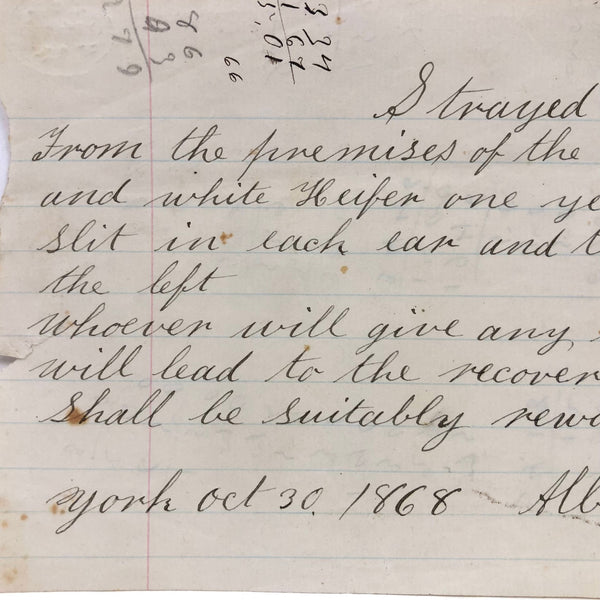 Strayed
From the premises of the
and white Heifer one ye
slit in each ear and t
the left
whoever will give any
will lead to the recover
Shall be suitably rewa
York Oct 30. 1868 Alb
66